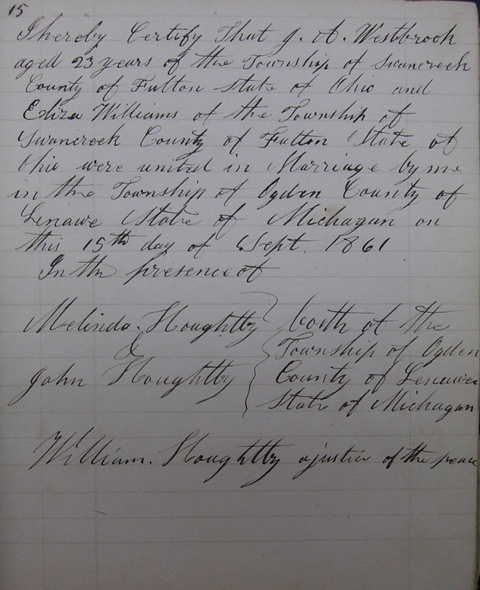 15
I hereby Certify That J. A. Westbrook
aged 23 years of the Township of Swancreek
County of Fulton State of Ohio and
Eliza Williams of the Township of
Swancreek County of Fulton State of
Ohio were united in Marriage by me
in the Township of Ogden County of
Lenawe State of Michagan on
this 15th day of Sept. 1861
In the presence of
Melinda. Houghtby } both of the
& Township of Ogden
John Houghtby County of Lenawee
State of Michagan
William. Houghtby a justice of the peace